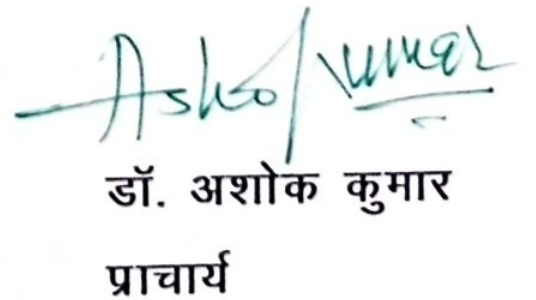 Ashok Kumar
डॉ. अशोक कुमार
प्राचार्य